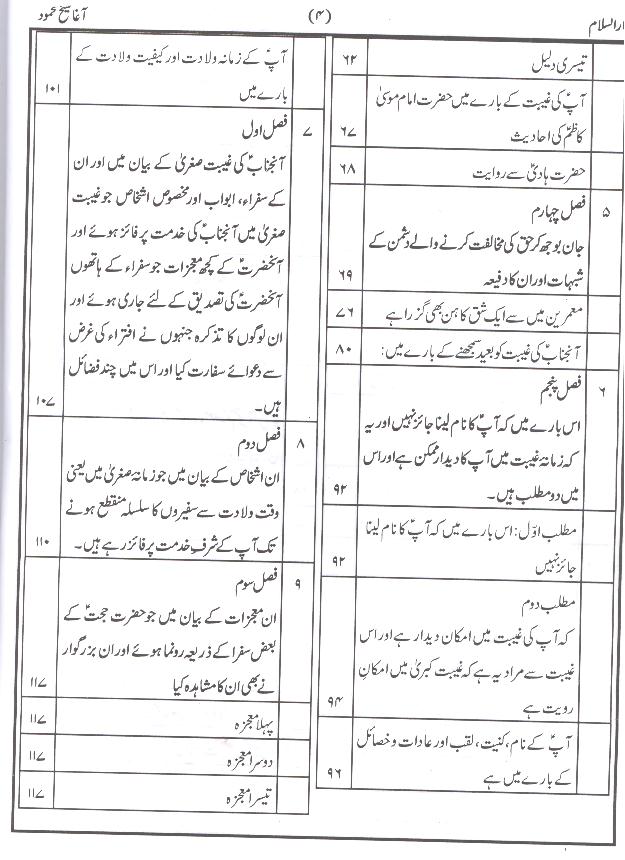 آغا شیخ محمود
(۴)
ارالسلام
تیسری دلیل
۶۲
آپؑ کی غیبت کے بارے میں حضرت امام موسیٰ
کاظمؑ کی احادیث
۶۷
حضرت ہادیؑ سے روایت
۶۸
۵
فصل چہارم
جان بوجھ کر حق کی مخالفت کرنے والے دشمن کے
شبہات اور ان کا دفیعہ
۶۹
معمرین میں سے ایک شق کاہن بھی گزرا ہے
۷۶
آنجنابؑ کی غیبت کو بعید سمجھنے کے بارے میں:
۸۰
۶
فصل پنجم
اس بارے میں کہ آپؑ کا نام لینا جائز نہیں اور یہ
کہ زمانۂ غیبت میں آپؑ کا دیدار ممکن ہے اور اس
میں دو مطلب ہیں۔
۹۲
مطلب اوّل: اس بارے میں کہ آپؑ کا نام لینا
جائز نہیں
۹۲
مطلب دوم
کہ آپؑ کی غیبت میں امکان دیدار ہے اور اس
غیبت سے مراد یہ ہے کہ غیبت کبریٰ میں امکان
رویت ہے
۹۴
آپؑ کے نام، کنیت، لقب اور عادات و خصائل
کے بارے میں ہے
۹۶
آپؑ کے زمانہ ولادت اور کیفیت ولادت کے
بارے میں
۱۰۱
۷
فصل اول
آنجنابؑ کی غیبت صغریٰ کے بیان میں اور ان
کے سفراء، ابواب اور مخصوص اشخاص جو غیبت
صغریٰ میں آنجنابؑ کی خدمت پر فائز ہوئے اور
آنحضرتؑ کے کچھ معجزات جو سفراء کے ہاتھوں
آنحضرتؑ کی تصدیق کے لئے جاری ہوئے اور
ان لوگوں کا تذکرہ جنہوں نے افتراء کی غرض
سے دعوائے سفارت کیا اور اس میں چند فضائل
ہیں۔
۱۰۷
۸
فصل دوم
ان اشخاص کے بیان میں جو زمانۂ صغریٰ میں یعنی
وقت ولادت سے سفیروں کا سلسلہ منقطع ہونے
تک آپؑ کے شرف خدمت پر فائز رہے ہیں۔
۱۱۰
۹
فصل سوم
ان معجزات کے بیان میں جو حضرت حجتؑ کے
بعض سفرا کے ذریعہ رونما ہوئے اور ان بزرگوار
نے بھی ان کا مشاہدہ کیا
۱۱۷
پہلا معجزہ
۱۱۷
دوسرا معجزہ
۱۱۷
تیسرا معجزہ
۱۱۷